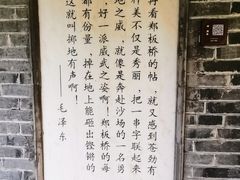 再看郑板桥的帖，就又感到苍劲有
种美不仅是秀丽，把一串字联起来
地之威，就像是奔赴沙场的一名勇
，好一派威武之姿啊！郑板桥的每
都有份量，掉在地上能砸出铿锵的
这就叫掷地有声啊！
——毛泽东